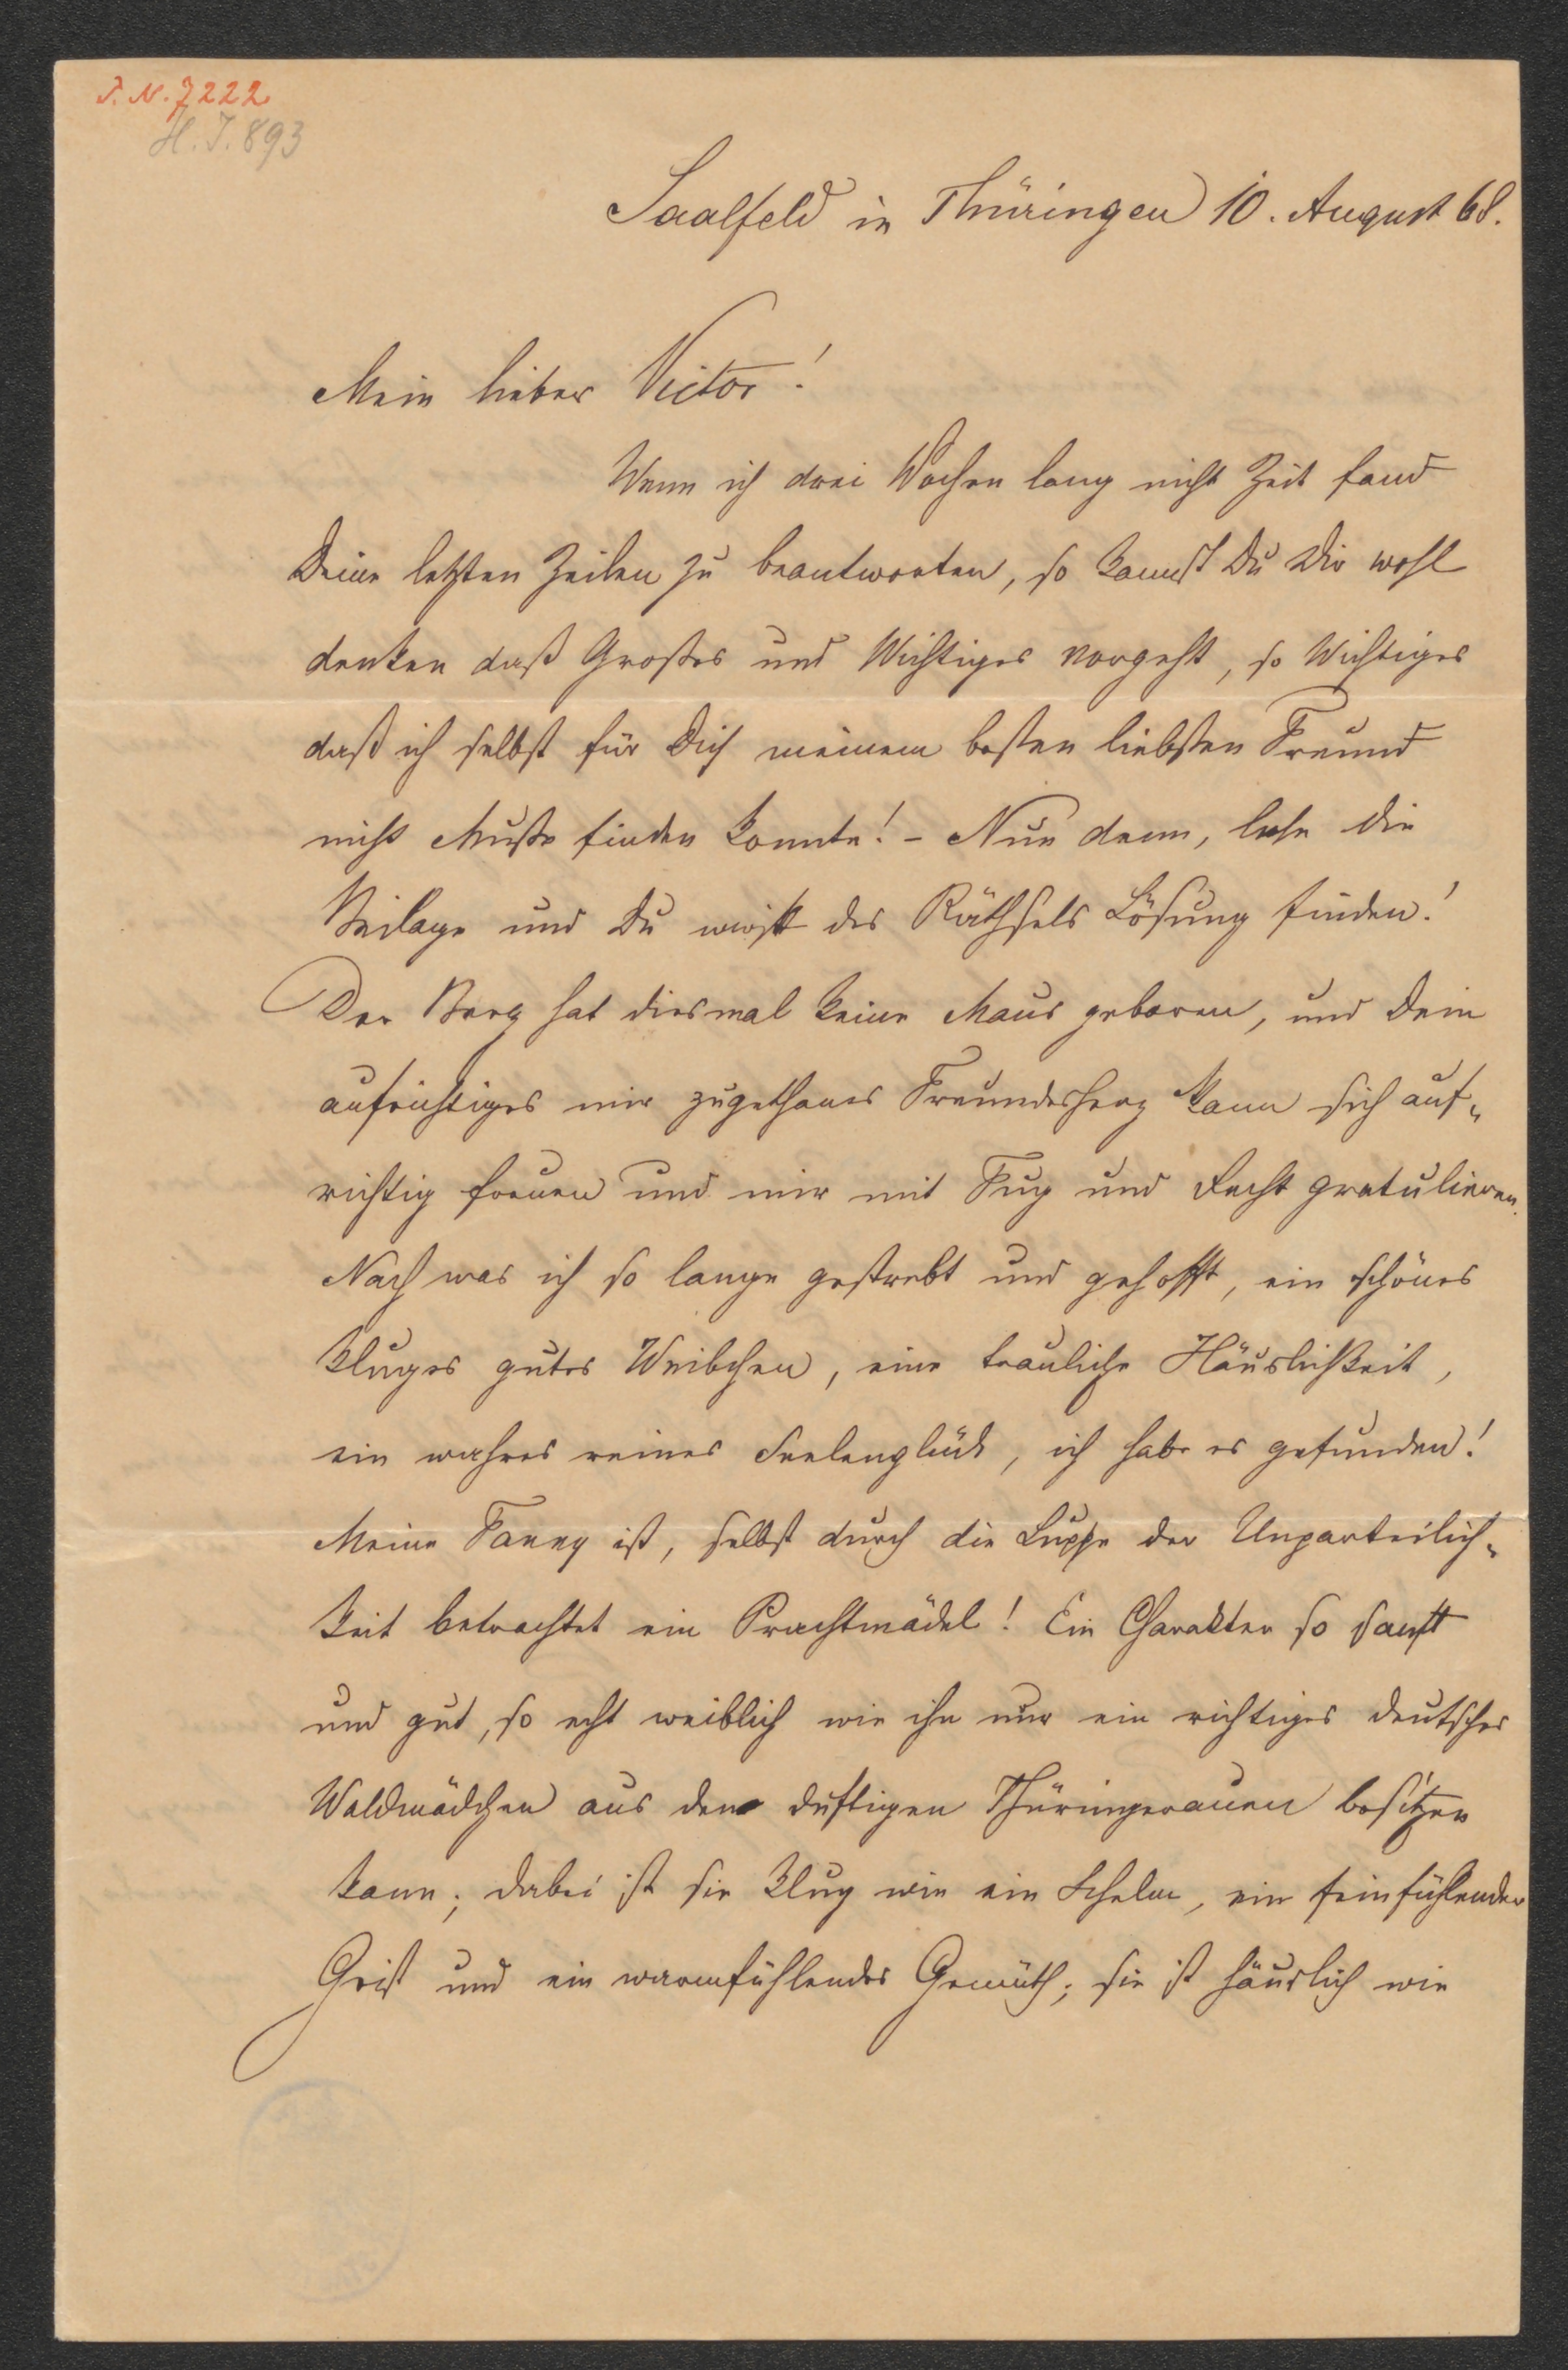 J. N. 7222
H. I. 893
Saalfeld in Thüringen 10. August 68.
Mein lieber Victor!
Wenn ich drei Wochen lang nicht Zeit fand
Deine letzten Zeilen zu beantworten, so kannst Du Dir wohl
denken daß Großes und Wichtiges vorgeht, so Wichtiges
daß ich selbst für Dich meinem besten liebsten Freund
nicht Muße finden konnte! - Nun denn, lese die
Beilage und Du wirst des Räthsels Lösung finden!
Der Berg hat diesmal keine Maus geboren, und Dein
aufrichtiges mir zugethanes Freundesherz kann sich auf„
richtig freuen und mir mit Fug und Recht gratulieren.
Nach was ich so lange gestrebt und gehofft, ein schönes
kluges gutes Weibchen, eine trauliche Häuslichkeit,
ein wahres reines Seelenglück, ich habe es gefunden!
Meine Fanny ist, selbst durch die Luppe der Unparteilich„
keit betrachtet ein Prachtmädel! Ein Charakter so sanft
und gut, so echt weiblich wie ihn nur ein richtiges deutsches
Waldmädchen aus den duftigen Thüringerauen besitzen
kann; dabei ist sie klug wie ein Schelm, ein feinfühlender
Geist und ein warmfühlendes Gemüth; sie ist häuslich wie